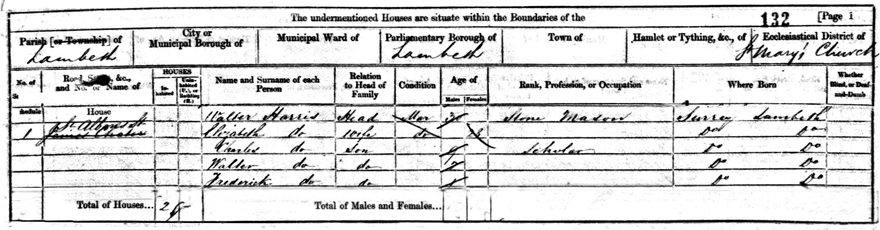 The undermentioned Houses are situate within the Boundaries of the 132 [Page 1
Parish [or Township] of Lambeth City or Municipal Borough of Municipal Ward of Parliamentary Borough of Lambeth Town of Hamlet or Tything, &c., of Ecclesiastical District of St Mary's Church
No. of Schedule Road, Street, &c., and No. or Name of House HOUSES Inhabited Uninhabited (U.), or Building (B.) Name and Surname of each Person Relation to Head of Family Condition Age of Males Females Rank, Profession, or Occupation Where Born Whether Blind, or Deaf-and-Dumb
Walter Harris Head Mar Stone Mason Surrey Lambeth
1 Elizabeth do Wife do Do Do
Charles do Son Scholar Do Do
Walter do do Do Do
Frederick do do Do Do
Total of Houses... Total of Males and Females...